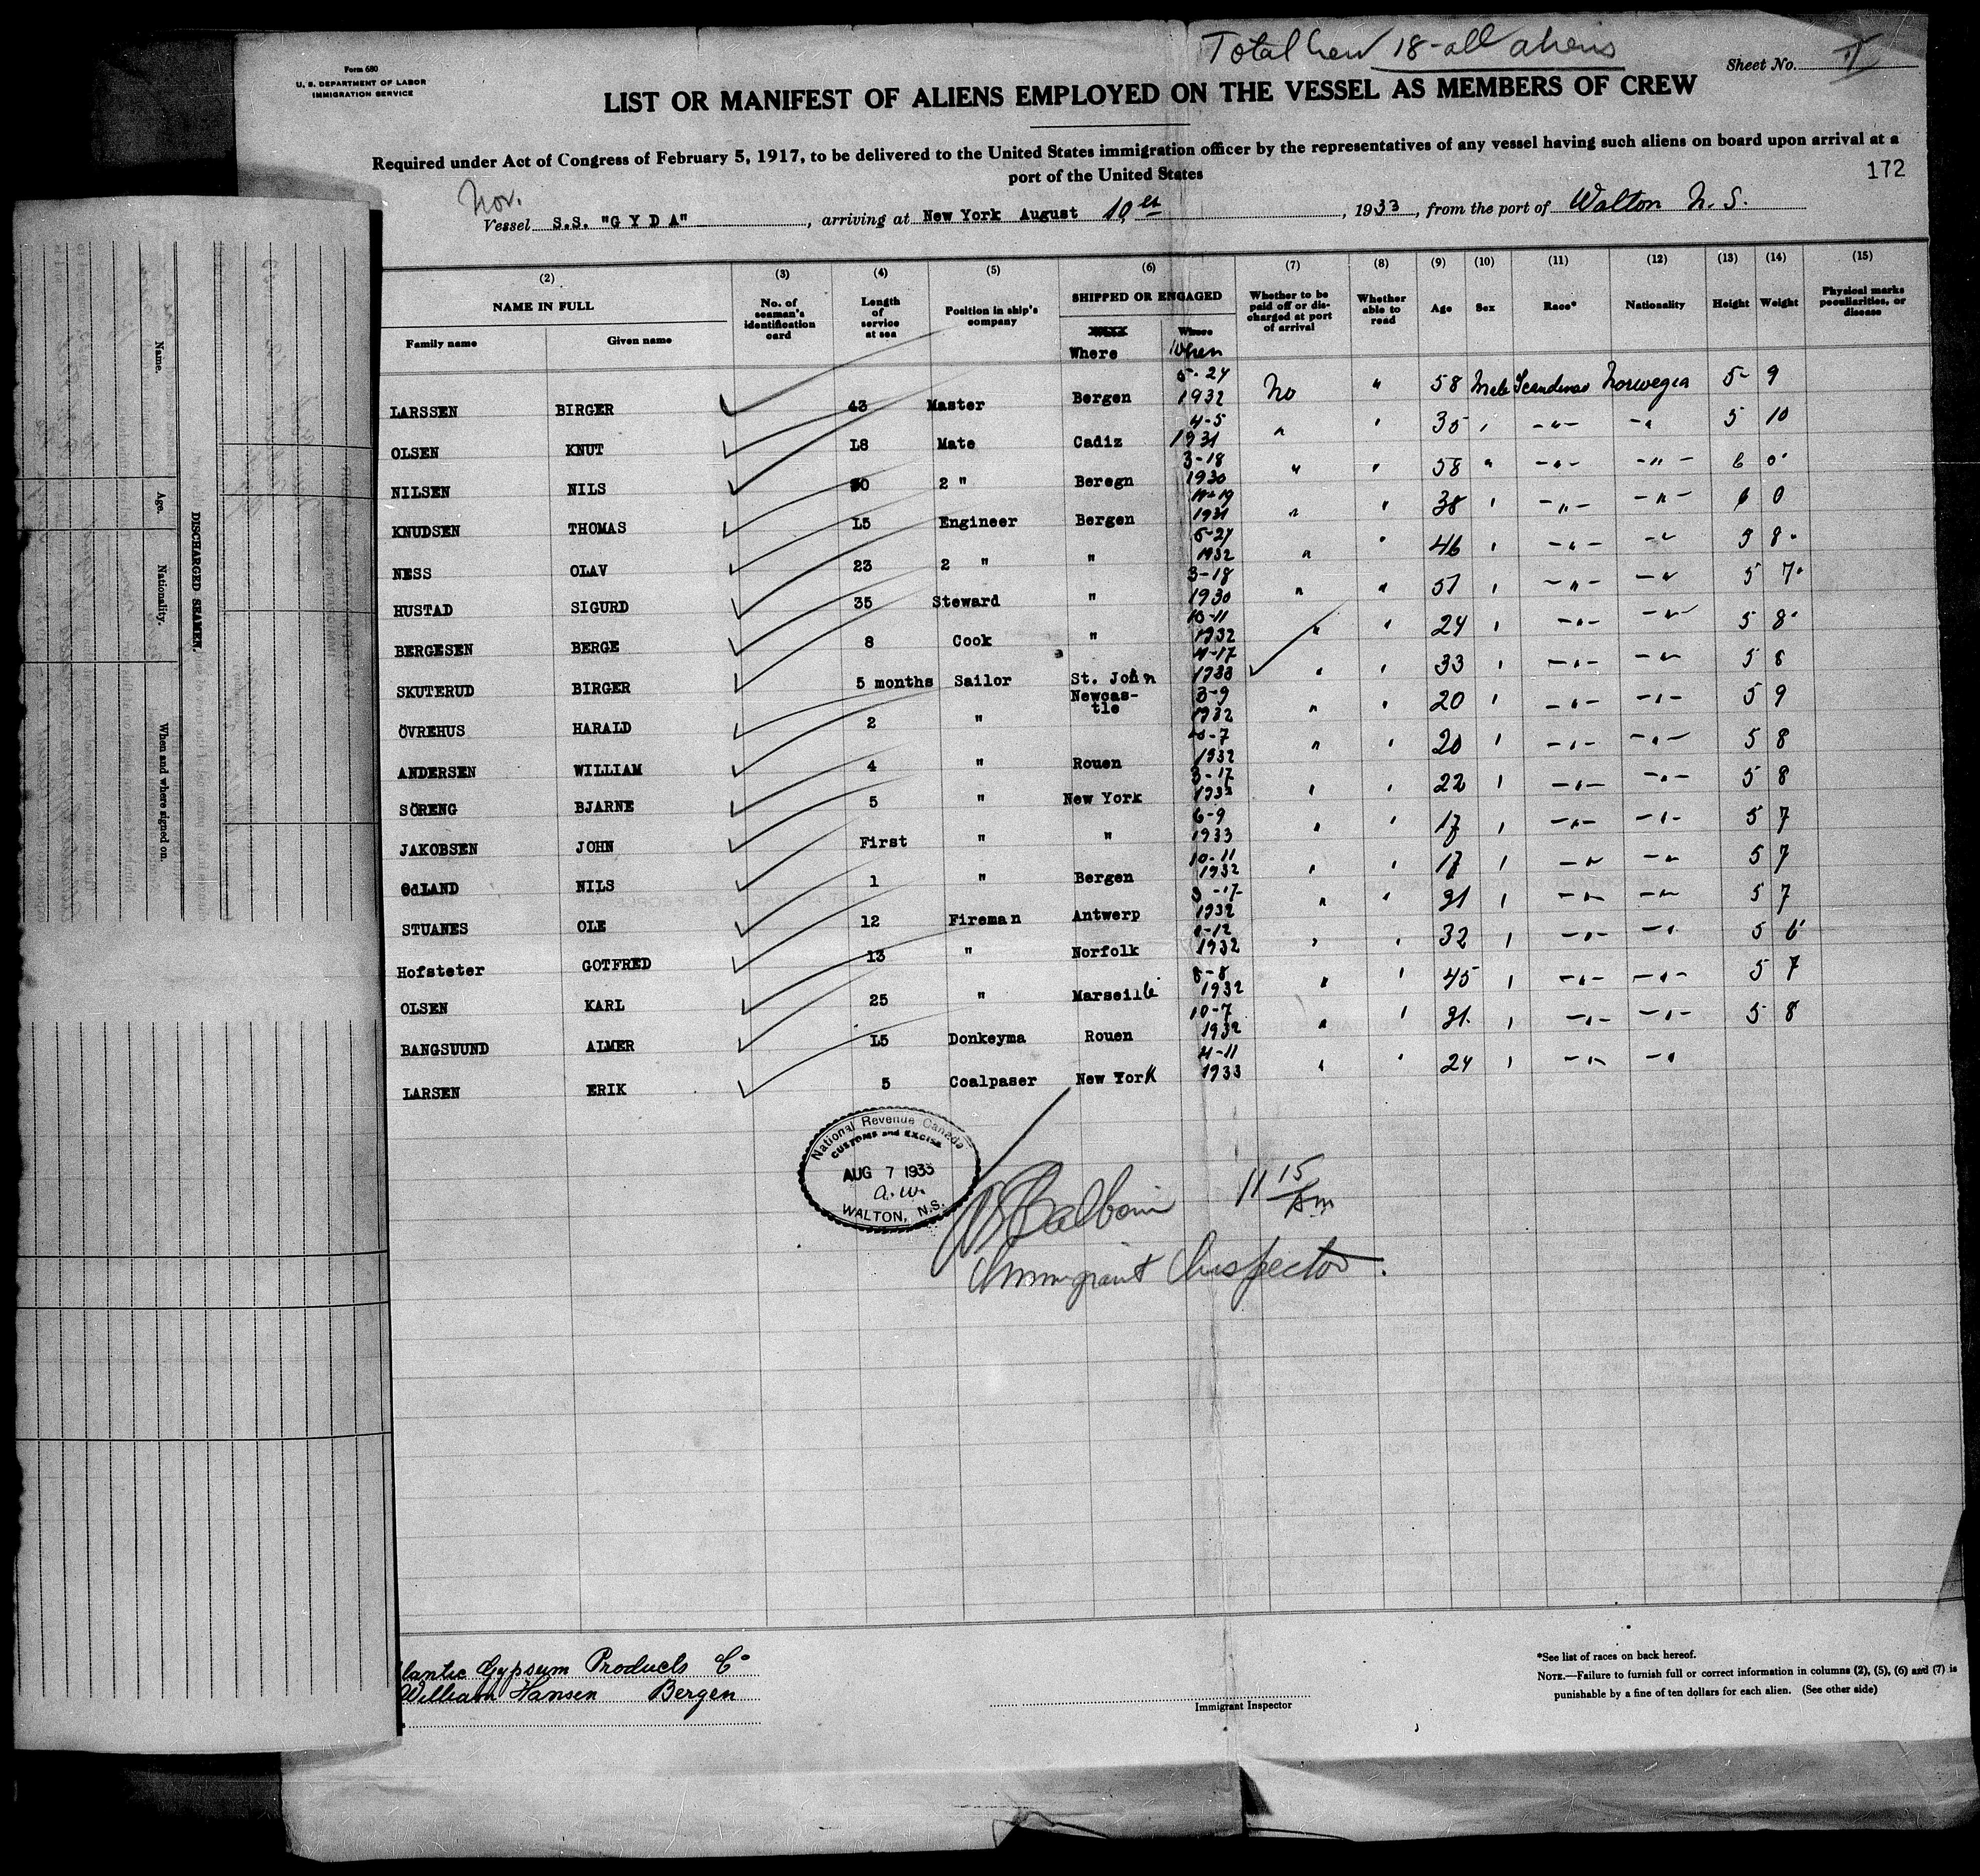 Total Crew 18 - all aliens
Form 680
U. S. DEPARTMENT OF LABOR
IMMIGRATION SERVICE
Sheet No.
LIST OR MANIFEST OF ALIENS EMPLOYED ON THE VESSEL AS MEMBERS OF CREW
Required under Act of Congress of February 5, 1917, to be delivered to the United States immigration officer by the representatives of any vessel having such aliens on board upon arrival at a
port of the United States
172
Nor.
Vessel S.S. "G Y D A", arriving at New York August 10, 1933, from the port of Walton N. S.
(2) (3) (4) (5) (6) (7) (8) (9) (10) (11) (12) (13) (14) (15)
NAME IN FULL No. of seaman's identification card Length of service at sea Position in ship's company SHIPPED OR ENGAGED Whether to be paid off or discharged at port of arrival Whether able to read Age Sex Race* Nationality Height Weight Physical marks peculiarities, or disease
Family name Given name Where When
LARSSEN BIRGER 43 Master Bergen 5-27 1932 No " 58 Male Scandinav Norwegia 5 9
OLSEN KNUT L8 Mate Cadiz 4-5 1931 " " 35 " -"- -" 5 10
NILSEN NILS 2 " Beregn 3-18 1930 " " 58 " -"- -"- 6 0
KNUDSEN THOMAS L5 Engineer Bergen 1931 " " 38 " -"- -"- 6 0
NESS OLAV 23 2 " " 5-27 1932 " " 46 " -"- -"- 8
HUSTAD SIGURD 35 Steward " 3-18 1930 " " 51 " -"- -"- 5 7
BERGESEN BERGE 8 Cook " 10-11 1932 " " 24 " -"- -"- 5 8
SKUTERUD BIRGER 5 months Sailor St. John 4-17 1933 " " 33 " -"- -"- 5 8
ÖVREHUS HARALD 2 " Newcas-tle 3-9 1932 " " 20 " -"- -"- 5 9
ANDERSEN WILLIAM 4 " Rouen 10-7 1932 " " 20 " -"- -"- 5 8
SÖRENG BJARNE 5 " New York 3-17 1933 " " 22 " -"- -"- 5 8
JAKOBSEN JOHN First " " 6-9 1933 " " 17 " -"- -"- 5 7
ØdLAND NILS 1 " Bergen 10-11 1932 " " 17 " -"- -"- 5 7
STUANES OLE 12 Fireman Antwerp 1932 " " " -"- -"- 5 7
Hofsteter GOTFRED 13 " Norfolk 1932 " " 32 " -"- -"- 5 6
OLSEN KARL 25 " Marseille 8-8 1932 " " 45 " -"- -"- 5 7
BANGSUUND ALMER L5 Donkeyma Rouen 10-7 1932 " " " -"- -"- 5 8
LARSEN ERIK 5 Coalpaser New York 4-11 1933 " " 24 " -"- -"
National Revenue Canada
CUSTOMS and EXCISE
AUG 7 1933
a.w.
WALTON, N.S.
11 15 Am
Immigrant Inspector.
lantic Gypsum Products Co
William Hansen Bergen
Immigrant Inspector
*See list of races on back hereof.
NOTE.—Failure to furnish full or correct information in columns (2), (5), (6) and (7) is
punishable by a fine of ten dollars for each alien. (See other side)
DISCHARGED SEAMEN.
Name. Age. Nationality. When and where signed on.